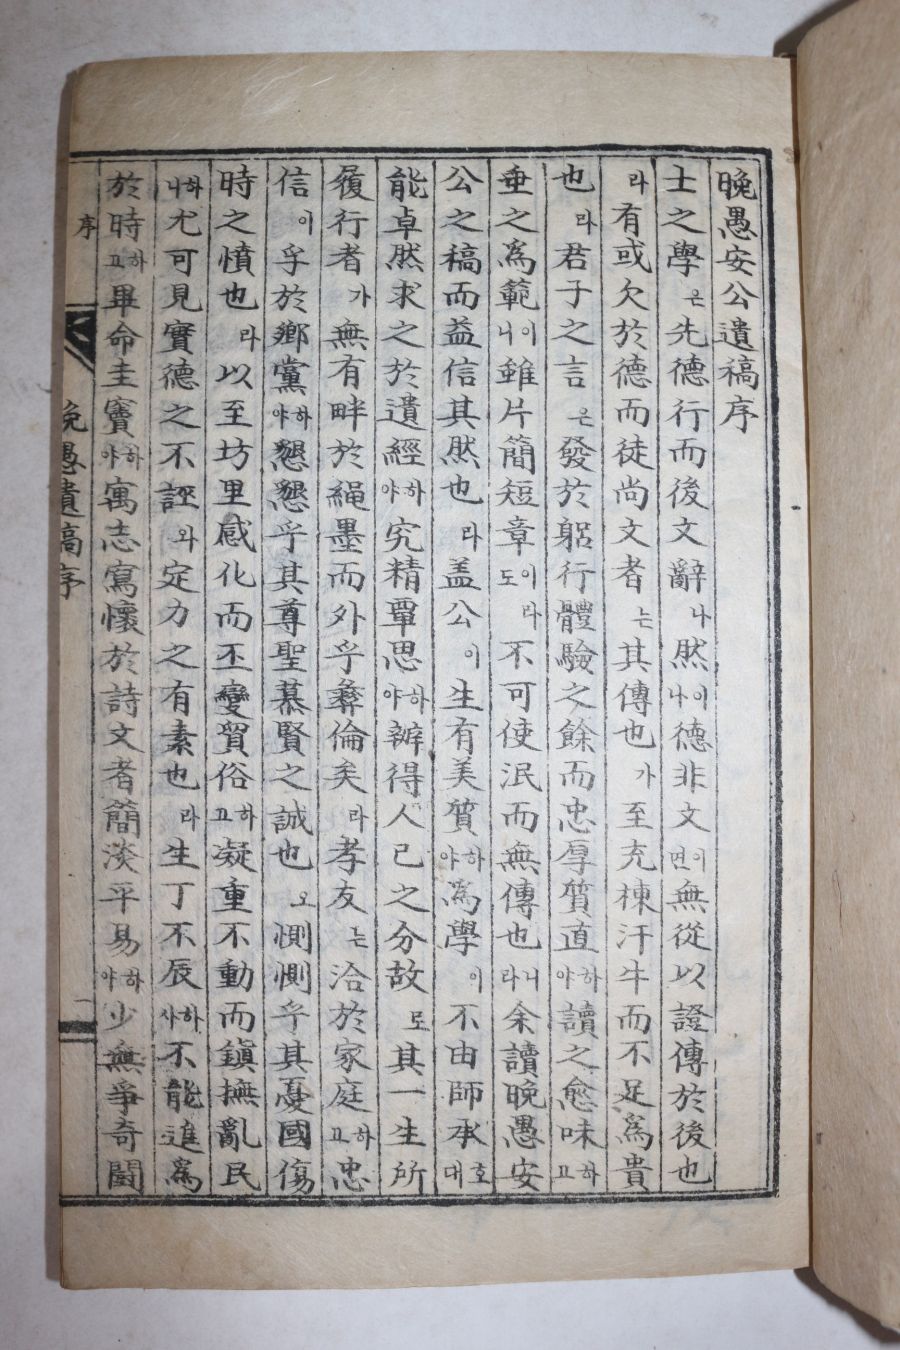 晩愚安公遺稿序
士之學은先德行而後文辭나然이나德非文이면無從以證傳於後也
라有或欠於德而徒尚文者는其傳也가至充棟汗牛而不足爲貴
也라君子之言은發於躬行體驗之餘而忠厚質直하야讀之愈味하고
垂之爲範이니雖片簡短章이라도不可使泯而無傳也니라余讀晚愚安
公之稿而益信其然也라盖公이生有美質하야爲學이不由師承호대
能卓然求之於遺經하야究精覃思하야辨得人己之分故로其一生所
履行者가無有畔於繩墨而外乎彝倫矣라孝友는洽於家庭하고忠
信이孚於鄉黨하야懇懇乎其尊聖慕賢之誠也오惻惻乎其憂國傷
時之憤也라以至坊里感化而丕變貿俗하고凝重不動而鎭撫亂民
하니尤可見實德之不誣와定力之有素也라生丁不辰하사不能進爲
於時하고畢命圭竇하야寓志寫懷於詩文者簡淡平易하야少無爭奇鬪
序
晚愚遺稿序
一